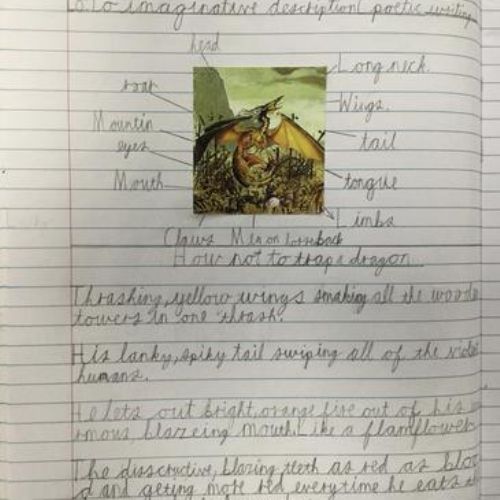 L.O. To imaginative description/ poetic writing
head
Long neck.
roar
Wings.
Mountin
tail
eyes
Mouth
tongue
Limbs
Claws Men on horseback
How not to trap a dragon
Thrashing, yellow wings smaking all the woode
towers in one thrash.
His lanky, spiky tail swiping all of the
humans.
He lets out bright, orange fire out of his e
rmous, blazeing mouth. Like a flamflower
The disscructive, blazing teeth as red as bloo
d and geting more red everytime he eats a